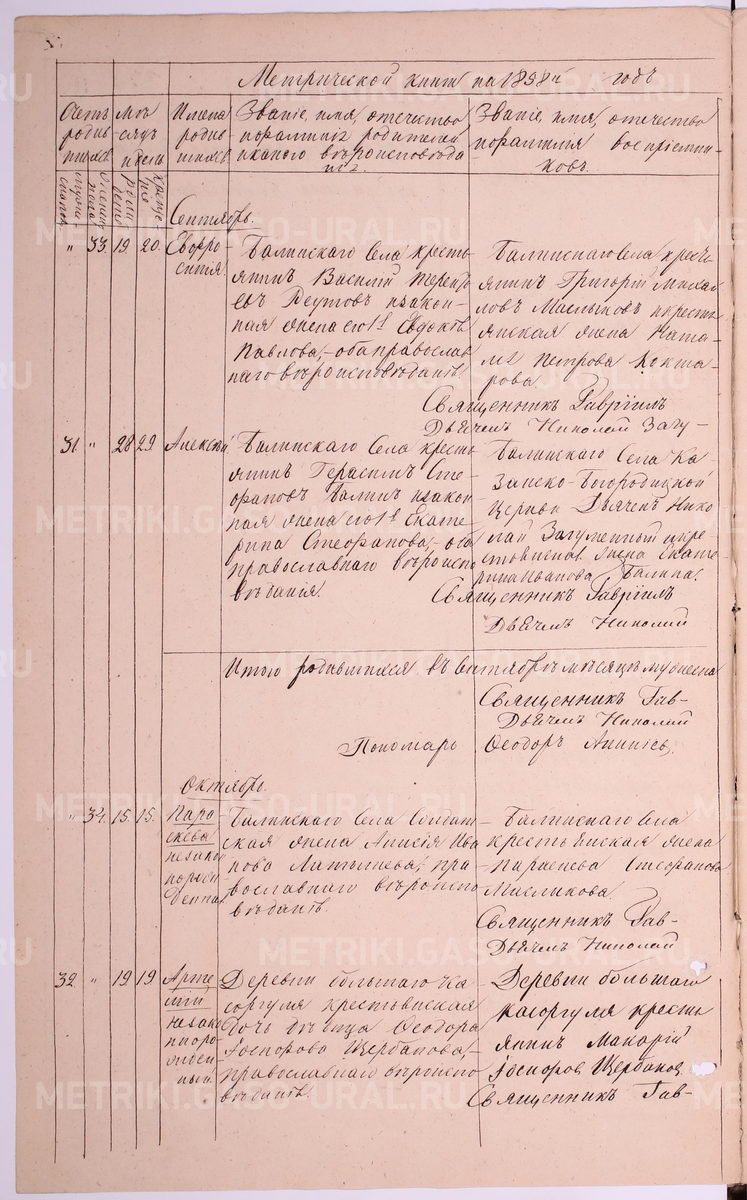 Метрической книги на 1898й годъ
Счетъ родившихся
Мѣсяцъ и день
Имена родившихся
Званіе, имя, отечество и фамилия родителей и какого вѣроисповѣданія
Званіе, имя, отечество и фамилія воспріемниковъ.
мужска
женска
рожде
креще
Сентябрь.
" 33. 19. 20. Евфро
синія.
Балинскаго Села кресть
янинъ Василій Терен
евъ Реутовъ и закон-
ная жена его Евдокія
Павлова, – оба православ
наго вѣроисповѣданія.
Балинскаго Села кресть
янинъ Григорій Михай
ловъ Маслыковъ и кресть
янская жена Ната
Петрова Кокша
рова
Священникъ Гавріилъ
Дьячекъ Николай Загу-
31. " 28 29 Алексѣй
Балинскаго Села кресть
янинъ Герасимъ Сте
фановъ Балинъ и закон
ная жена его Екате
рина Стефанова, – оба
православнаго вѣроиспо
вѣданія.
Балинскаго Села Ка
занско-Богородицкой
Церкви Дьячекъ Нико
лай Загуменный и кре
стьянская жена Екате
рина Иванова Балина.
Священникъ Гавріилъ
Дьячекъ Николай
Итого родившихся въ Сентябрѣ мѣсяцѣ мужеска
Священникъ Гав-
Дьячекъ Николай
Пономарь Ѳеодоръ
Октябрь.
" 34. 15. 15. Пара
скева
незако
норож
денная
Балинскаго Села Солдат
ская жена Анисія Ива
нова, пра
вославнаго вѣроиспо
вѣданія.
Балинскаго Села
крестьянская жена
Параскева Стефанова
Масликова.
Священникъ Гав-
Дьячекъ Николай
32 " 19 19 Арте
мій
незако
нноро
жден
ный.
Деревни большаго Ка
соргуля крестьянская
дочь дѣвица Ѳеодора
Іоспорова Щербакова, –
православнаго вѣроиспо
вѣданія.
Деревни большаго
Касоргуля кресть
янинъ Макарій
Іоспоровъ Щербаковъ
Священникъ Гав-
METRIKI.GASO-URAL.RU